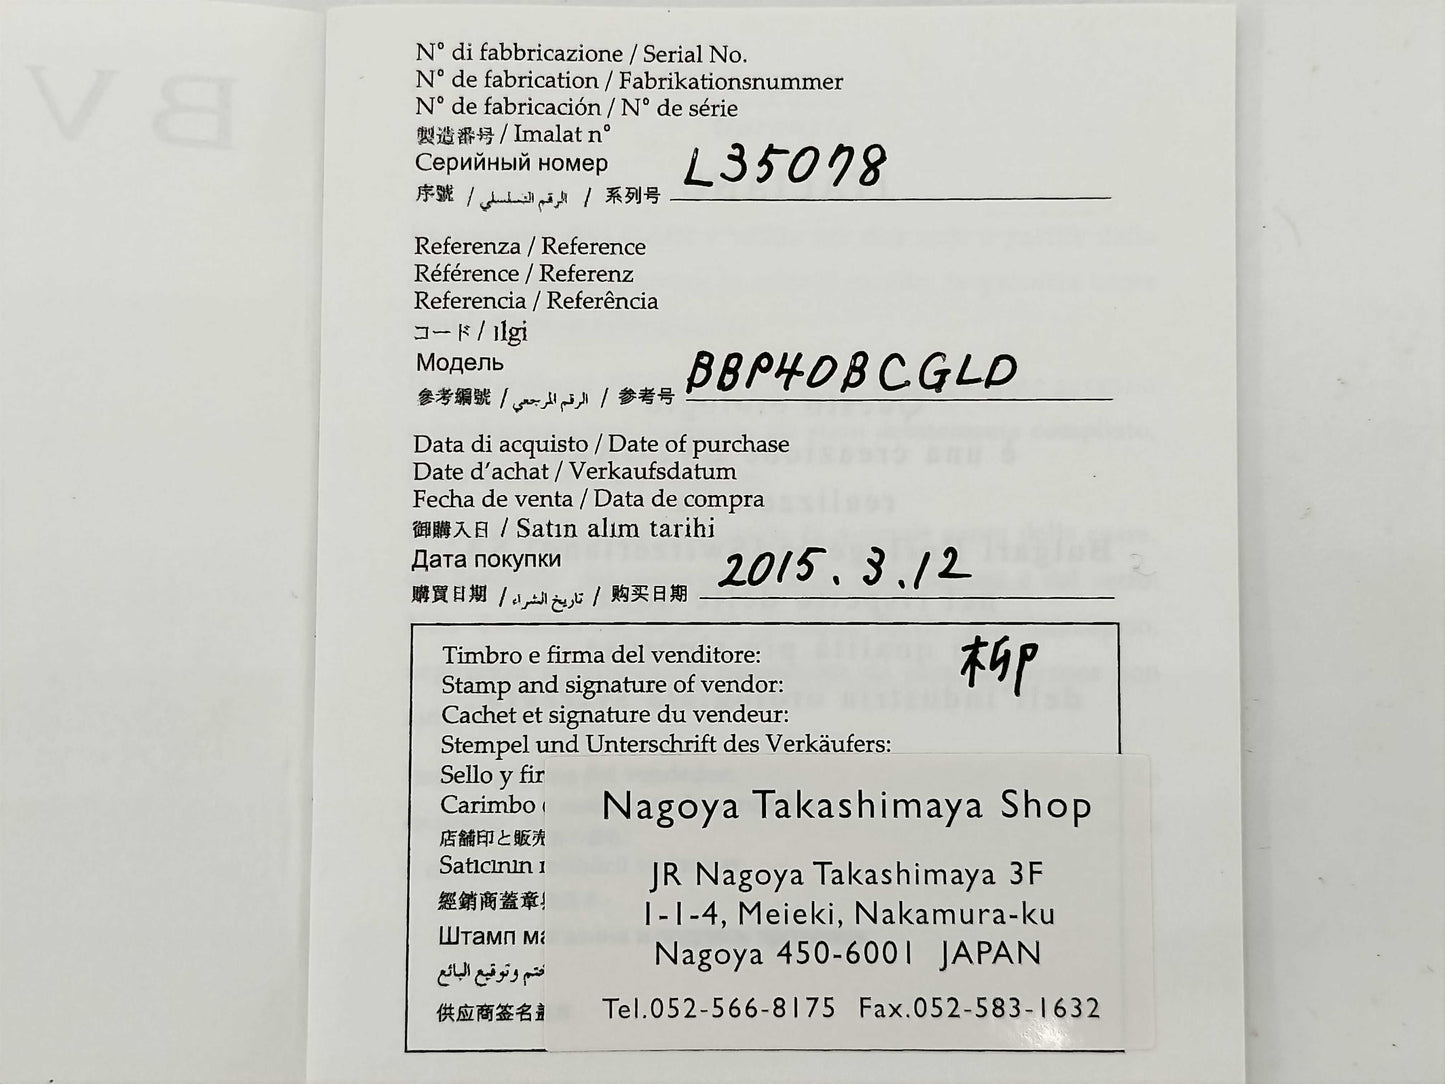 N° di fabbricazione / Serial No.
N° de fabrication / Fabrikationsnummer
N° de fabricación / N° de série
製造番号 / Imalat n°
Серийный номер
序號 / الرقم التسلسلي / 系列号 L35078
Referenza / Reference
Référence / Referenz
Referencia / Referência
コード / ılgi
Модель
參考編號 / الرقم المرجعي / 参考号 BBP40BCGLD
Data di acquisto / Date of purchase
Date d'achat / Verkaufsdatum
Fecha de venta / Data de compra
御購入日 / Satın alım tarihi
Дата покупки
購買日期 / تاريخ الشراء / 购买日期 2015.3.12
Timbro e firma del venditore: 柳
Stamp and signature of vendor:
Cachet et signature du vendeur:
Stempel und Unterschrift des Verkäufers:
Sello y fir
Carimbo
店舗印と販売
Satıcının
經銷商蓋章
Штамп ма
ختم وتوقيع البائع
供应商签名盖
Nagoya Takashimaya Shop
JR Nagoya Takashimaya 3F
1-1-4, Meieki, Nakamura-ku
Nagoya 450-6001 JAPAN
Tel.052-566-8175 Fax.052-583-1632